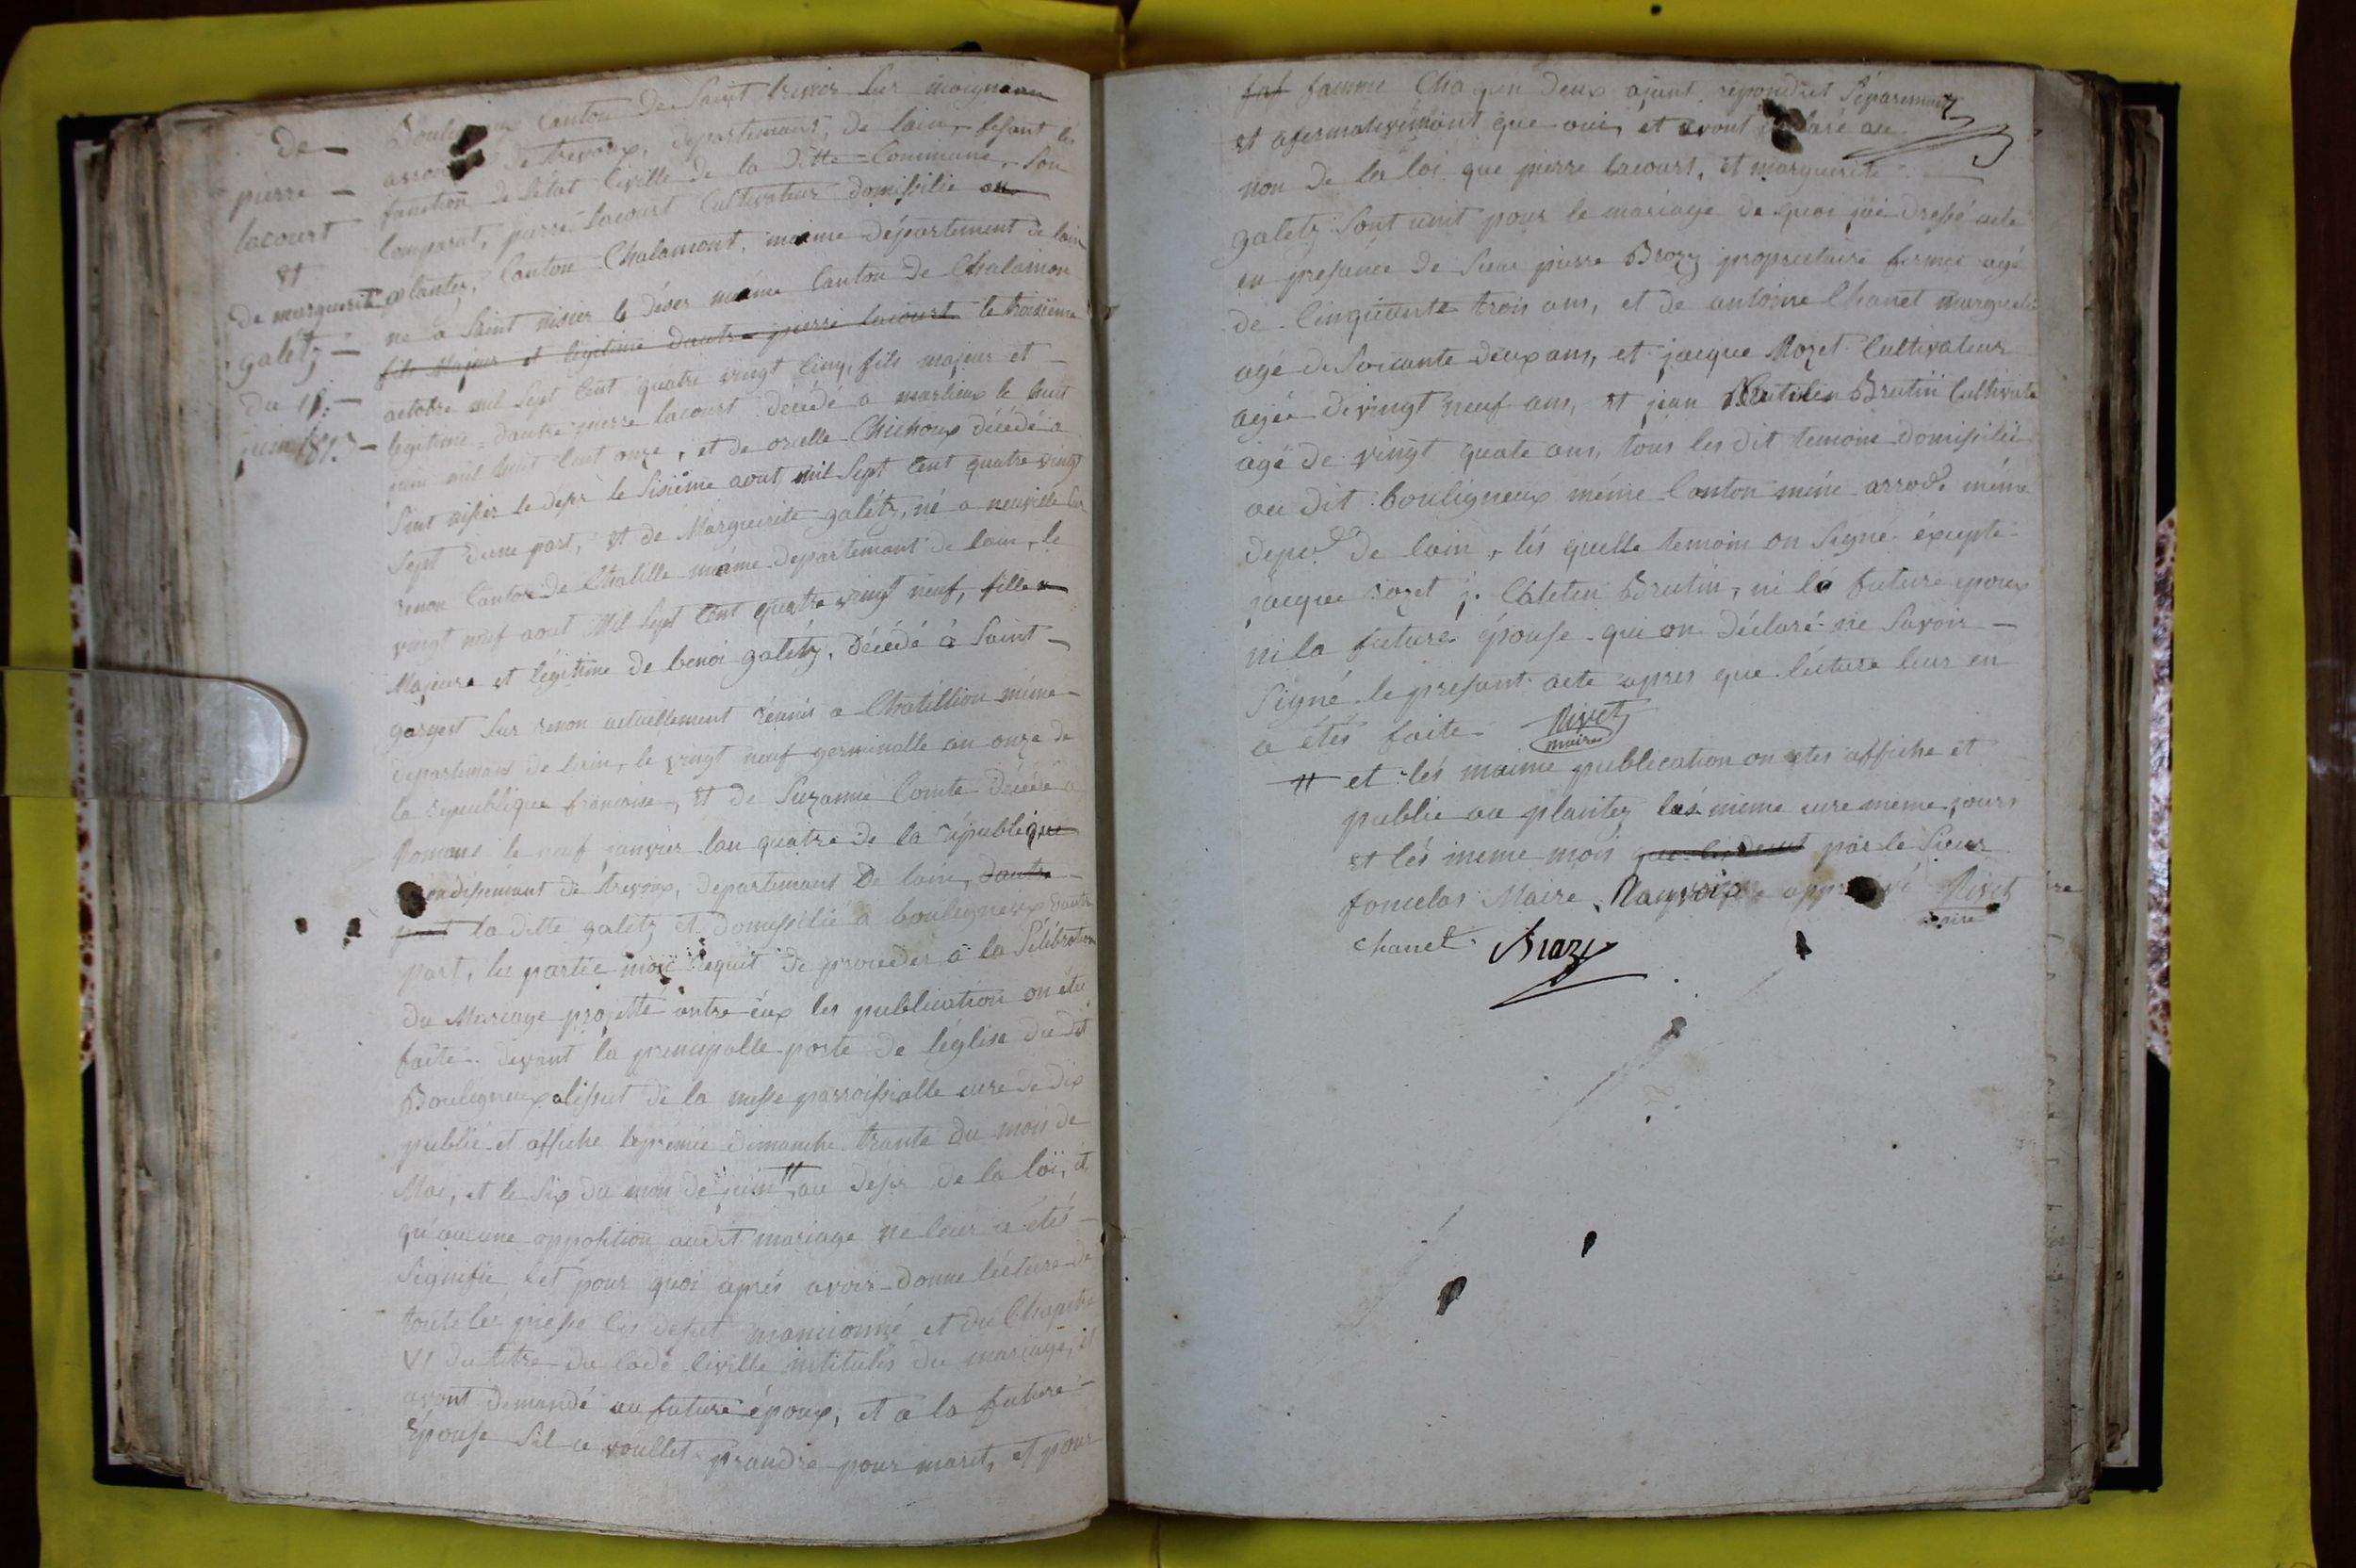 de
pierre
lacourt
et
de marguerite
galetz
du
juin 1813
canton de Saint trivier Sur moignans
de trevoux, departemant, de lain, fesant les
fonction de l'état Civille de la ditte Commune, Son
Comparut, pierre lacourt Cultivateur domissilie au
plantez, Canton Chalamont, maime département de lain
né a Saint nisier le déser maime Canton de Chalamon
fils Majeur et legitime dautre pierre lacourt le troisième
actobre mil Sept Cent quatre vingt Cinq, fils majeur et
legitime dautre pierre lacourt décédé a marlieux le huit
juin mil huit Cent onze, et de Chichoux décédé a
Sint nisier le désér le Sisième aout mil Sept Cent quatre vingt
Sept dune part, et de Marguerite galétz, né a neuville Sur
renon Canton de Chatille maime departemant de lain, le
vingt neuf aout Mil Sept Cent quatre vingt neuf, fille
Majeure et légitime de benoi galétz, décédé à Saint
Sur renon actuellement réunis a Chatillion même
departemans de lain, le vingt neuf germinalle an onze de
la republique francoise, et de Suzanne Comte décédé a
Romans le neuf janvier lan quatre de la république
de trevoux, departemans de lain, dautre
part la ditte galetz et domissilié a bouligneux dautre
part, les partie mon requit de proceder a la Sélébration
du Mariage projetté antre eux les publication on étu
faite devant la principalle porte de léglise du dit
Bouligneux alissut de la messe parroissialle eure de dix
publié et affiche le premie dimanche trante du mois de
Mai, et le Six du mois de juin # au désir de la loi, et
qu'aucune oppohtion audit mariage ne leur a étés
Signifie et pour quoi aprés avoir donne lécture de
toute les piesse Ci desut mancionné et du Chapitre
VI du titre du Code Civille intitulés du mariage, et
avont demandé au future époux, et a la future
Epouse Sil ce voullet prandre pour marit, et pour
faf famme Chaqun deux ajant répondut Séparemant
et afermativemant que oui, et avont déclaré au
non de la loi que pierre lacourt, et marguerite
galetz Sont unit pour le mariage de quoi jai dressé acte
en presance de Sieur pierre Brozy proprietaire fermié agé
de Cinquante trois ans, et de antoine Chanet
agé de Soixante deux ans, et jacque Rozet Cultivateur
agée de vingt neuf ans, et jean Brutin Cultivate
agé de vingt quate ans, tous les dit temoin domissilié
au dit bouligneux même Canton même arrode même
depo de lain, lés quelle temoin on Signé éxcepté
jacque rozet j. Brutin, ni lé future époux
ni la future épouse qui on déclaré ne Savoir
Signé le presant acte apres que lécture leur en
a étés faite Nivet
maire
# et lés maime publication on etes affiche et
publie au plantez lés même eure même jours
et lés meme mois par le Sieur
Maire approuvé Nivet
maire
chanet Brazy